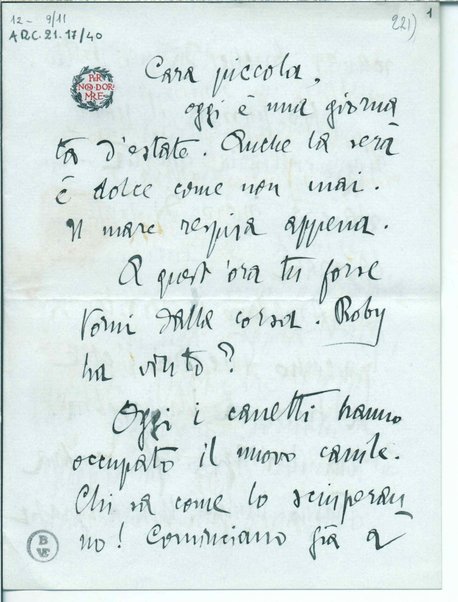 12 - 9/11
ARC.21.17/40
221)
1
PER
NON DOR
MIRE
Cara piccola,
oggi è una giorna
ta d'estate. Anche la sera
è dolce come non mai.
Il mare respira appena.
A quest'ora tu forse
torni dalla corsa. Roby
ha vinto?
Oggi i canetti hanno
occupato il nuovo canile.
Chi sa come lo sciuperan
no! Cominciano già a
B
VE